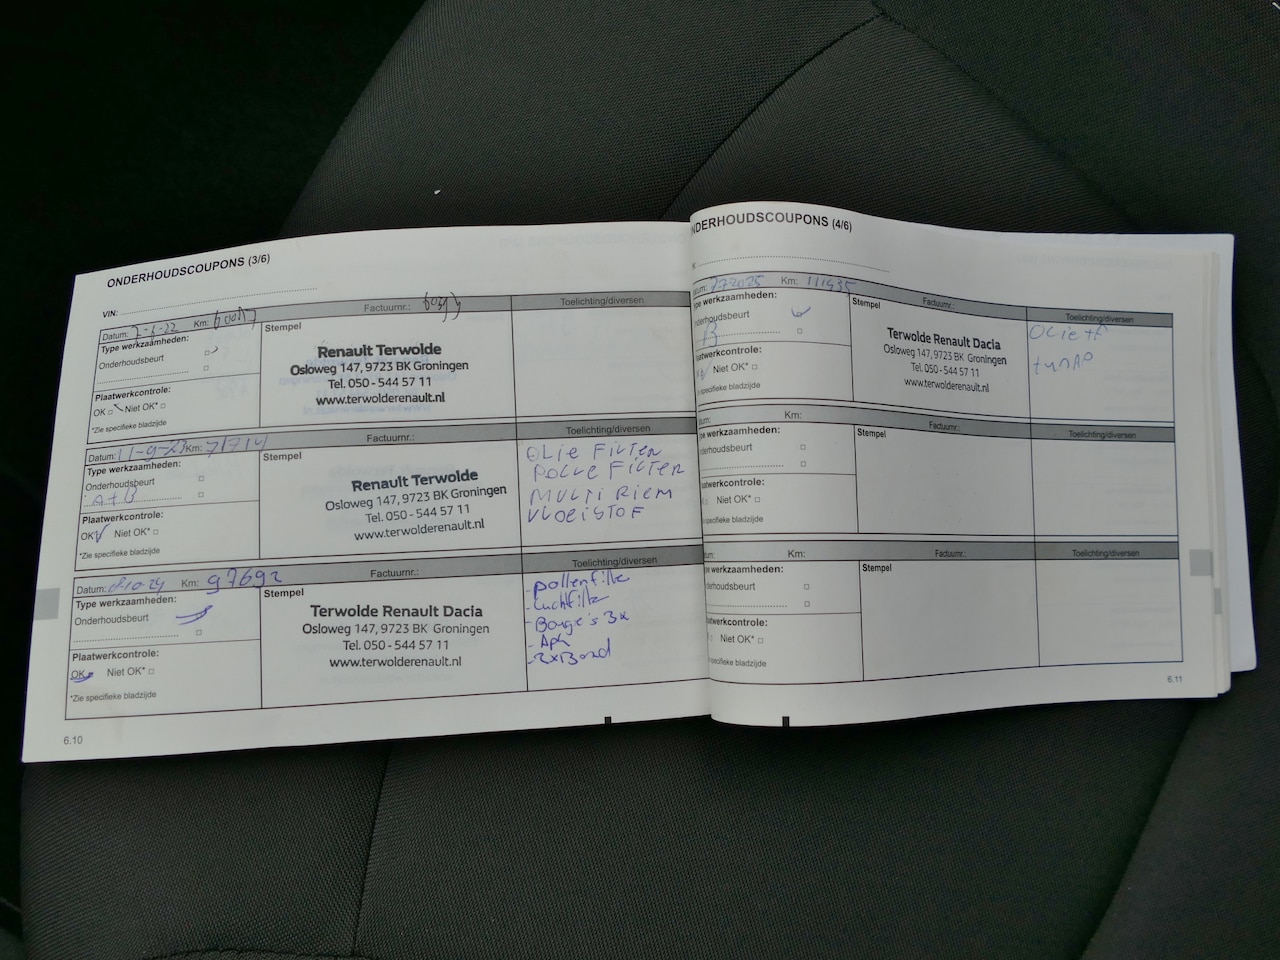 ONDERHOUDSCOUPONS (3/6)
VIN:
Datum: 7-6-22 Km: Factuurnr.: Toelichting/diversen
Type werkzaamheden:
Onderhoudsbeurt
Plaatwerkcontrole:
OK Niet OK*
*Zie specifieke bladzijde
Stempel
Renault Terwolde
Osloweg 147, 9723 BK Groningen
Tel. 050 - 544 57 11
www.terwolderenault.nl
Datum: 11-9-23 Km: Factuurnr.: Toelichting/diversen
Type werkzaamheden:
Onderhoudsbeurt
A+B
Plaatwerkcontrole:
OK Niet OK*
*Zie specifieke bladzijde
Stempel
Renault Terwolde
Osloweg 147, 9723 BK Groningen
Tel. 050 - 544 57 11
www.terwolderenault.nl
OLIE FILTER
POLLE FILTER
MULTI RIEM
VLOEISTOF
Datum: Km: 97692 Factuurnr.: Toelichting/diversen
Type werkzaamheden:
Onderhoudsbeurt
Plaatwerkcontrole:
OK Niet OK*
*Zie specifieke bladzijde
Stempel
Terwolde Renault Dacia
Osloweg 147, 9723 BK Groningen
Tel. 050 - 544 57 11
www.terwolderenault.nl
- pollenfilte
- Luchtfilte
- Bougie's 3x
- Apk
6.10
NDERHOUDSCOUPONS (4/6)
Km: 111935 Factuurnr.: Toelichting/diversen
pe werkzaamheden:
nderhoudsbeurt
B
aatwerkcontrole:
Niet OK*
e specifieke bladzijde
Stempel
Terwolde Renault Dacia
Osloweg 147, 9723 BK Groningen
Tel. 050 - 544 57 11
www.terwolderenault.nl
OLie +F
tum: Km: Factuurnr.: Toelichting/diversen
pe werkzaamheden:
nderhoudsbeurt
aatwerkcontrole:
Niet OK*
e specifieke bladzijde
Stempel
tum: Km: Factuurnr.: Toelichting/diversen
pe werkzaamheden:
nderhoudsbeurt
aatwerkcontrole:
Niet OK*
e specifieke bladzijde
Stempel
6.11